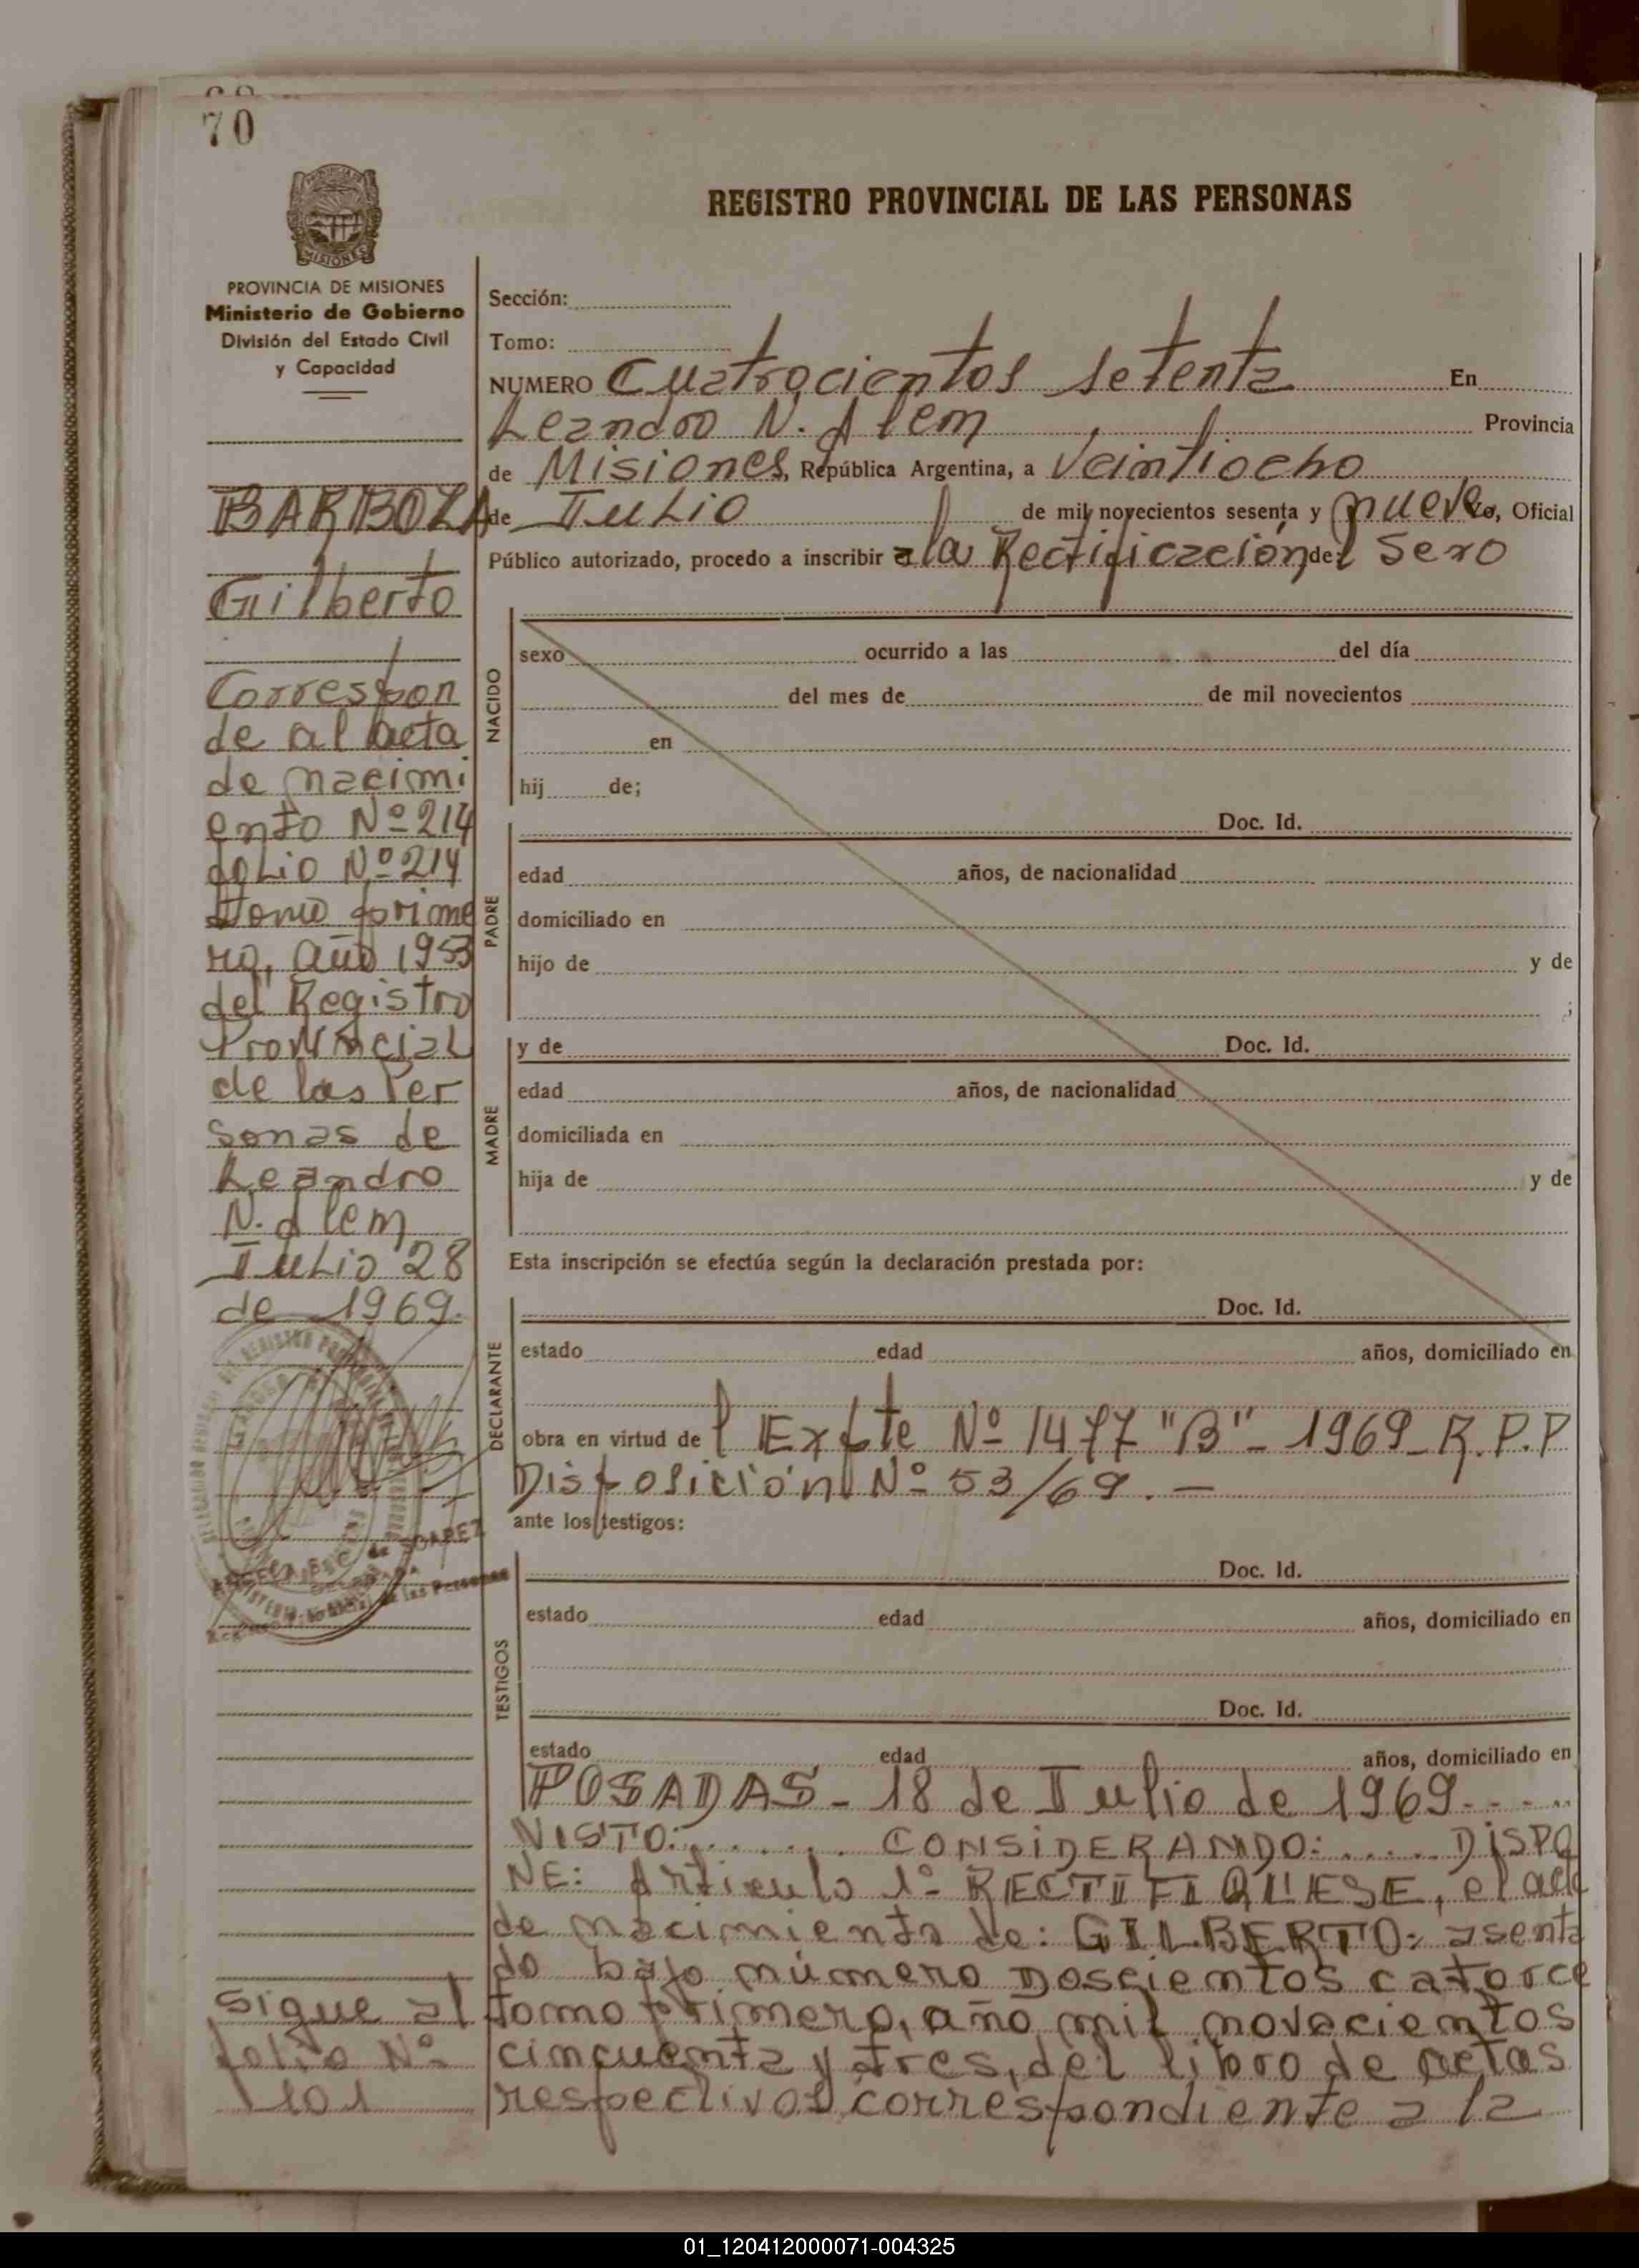 70
REGISTRO PROVINCIAL DE LAS PERSONAS
MISIONES
PROVINCIA DE MISIONES
Ministerio de Gobierno
División del Estado Civil
y Capacidad
BARBOZA
Gilberto
Correspon
de al acta
de nacimi
ento Nº 214
folio Nº 214
tomo prime
ro, año 1953
del Registro
Provincial
de las Per
sonas de
Leandro
N. Alem
Julio 28
de 1969.
de SOAREZ
de las Personas
sigue al
folio Nº
101
Sección:
Tomo:
NUMERO Cuatrocientos setenta En
Leandro N. Alem Provincia
de Misiones, República Argentina, a Veintiocho
de Julio de mil novecientos sesenta y nueve Yo, Oficial
Público autorizado, procedo a inscribir a la Rectificación del sexo
NACIDO
sexo ocurrido a las del día
del mes de de mil novecientos
en
hij de;
PADRE
Doc. Id.
edad años, de nacionalidad
domiciliado en
hijo de y de
;
MADRE
y de Doc. Id.
edad años, de nacionalidad
domiciliada en
hija de y de
Esta inscripción se efectúa según la declaración prestada por:
DECLARANTE
Doc. Id.
estado edad años, domiciliado en
obra en virtud del Expte Nº 1477 "B"- 1969-R.P.P
Disposición Nº 53/69.-
ante los testigos:
TESTIGOS
Doc. Id.
estado edad años, domiciliado en
Doc. Id.
estado edad años, domiciliado en
POSADAS - 18 de Julio de 1969.....
VISTO:....... CONSIDERANDO:..... DISPO
NE: Artículo 1º RECTIFIQUESE, el acta
de nacimiento de: GILBERTO: asenta
do bajo número Doscientos catorce
tomo primero, año mil novecientos
cincuenta y tres, del libro de actas
respectivos correspondiente a la
01_120412000071-004325